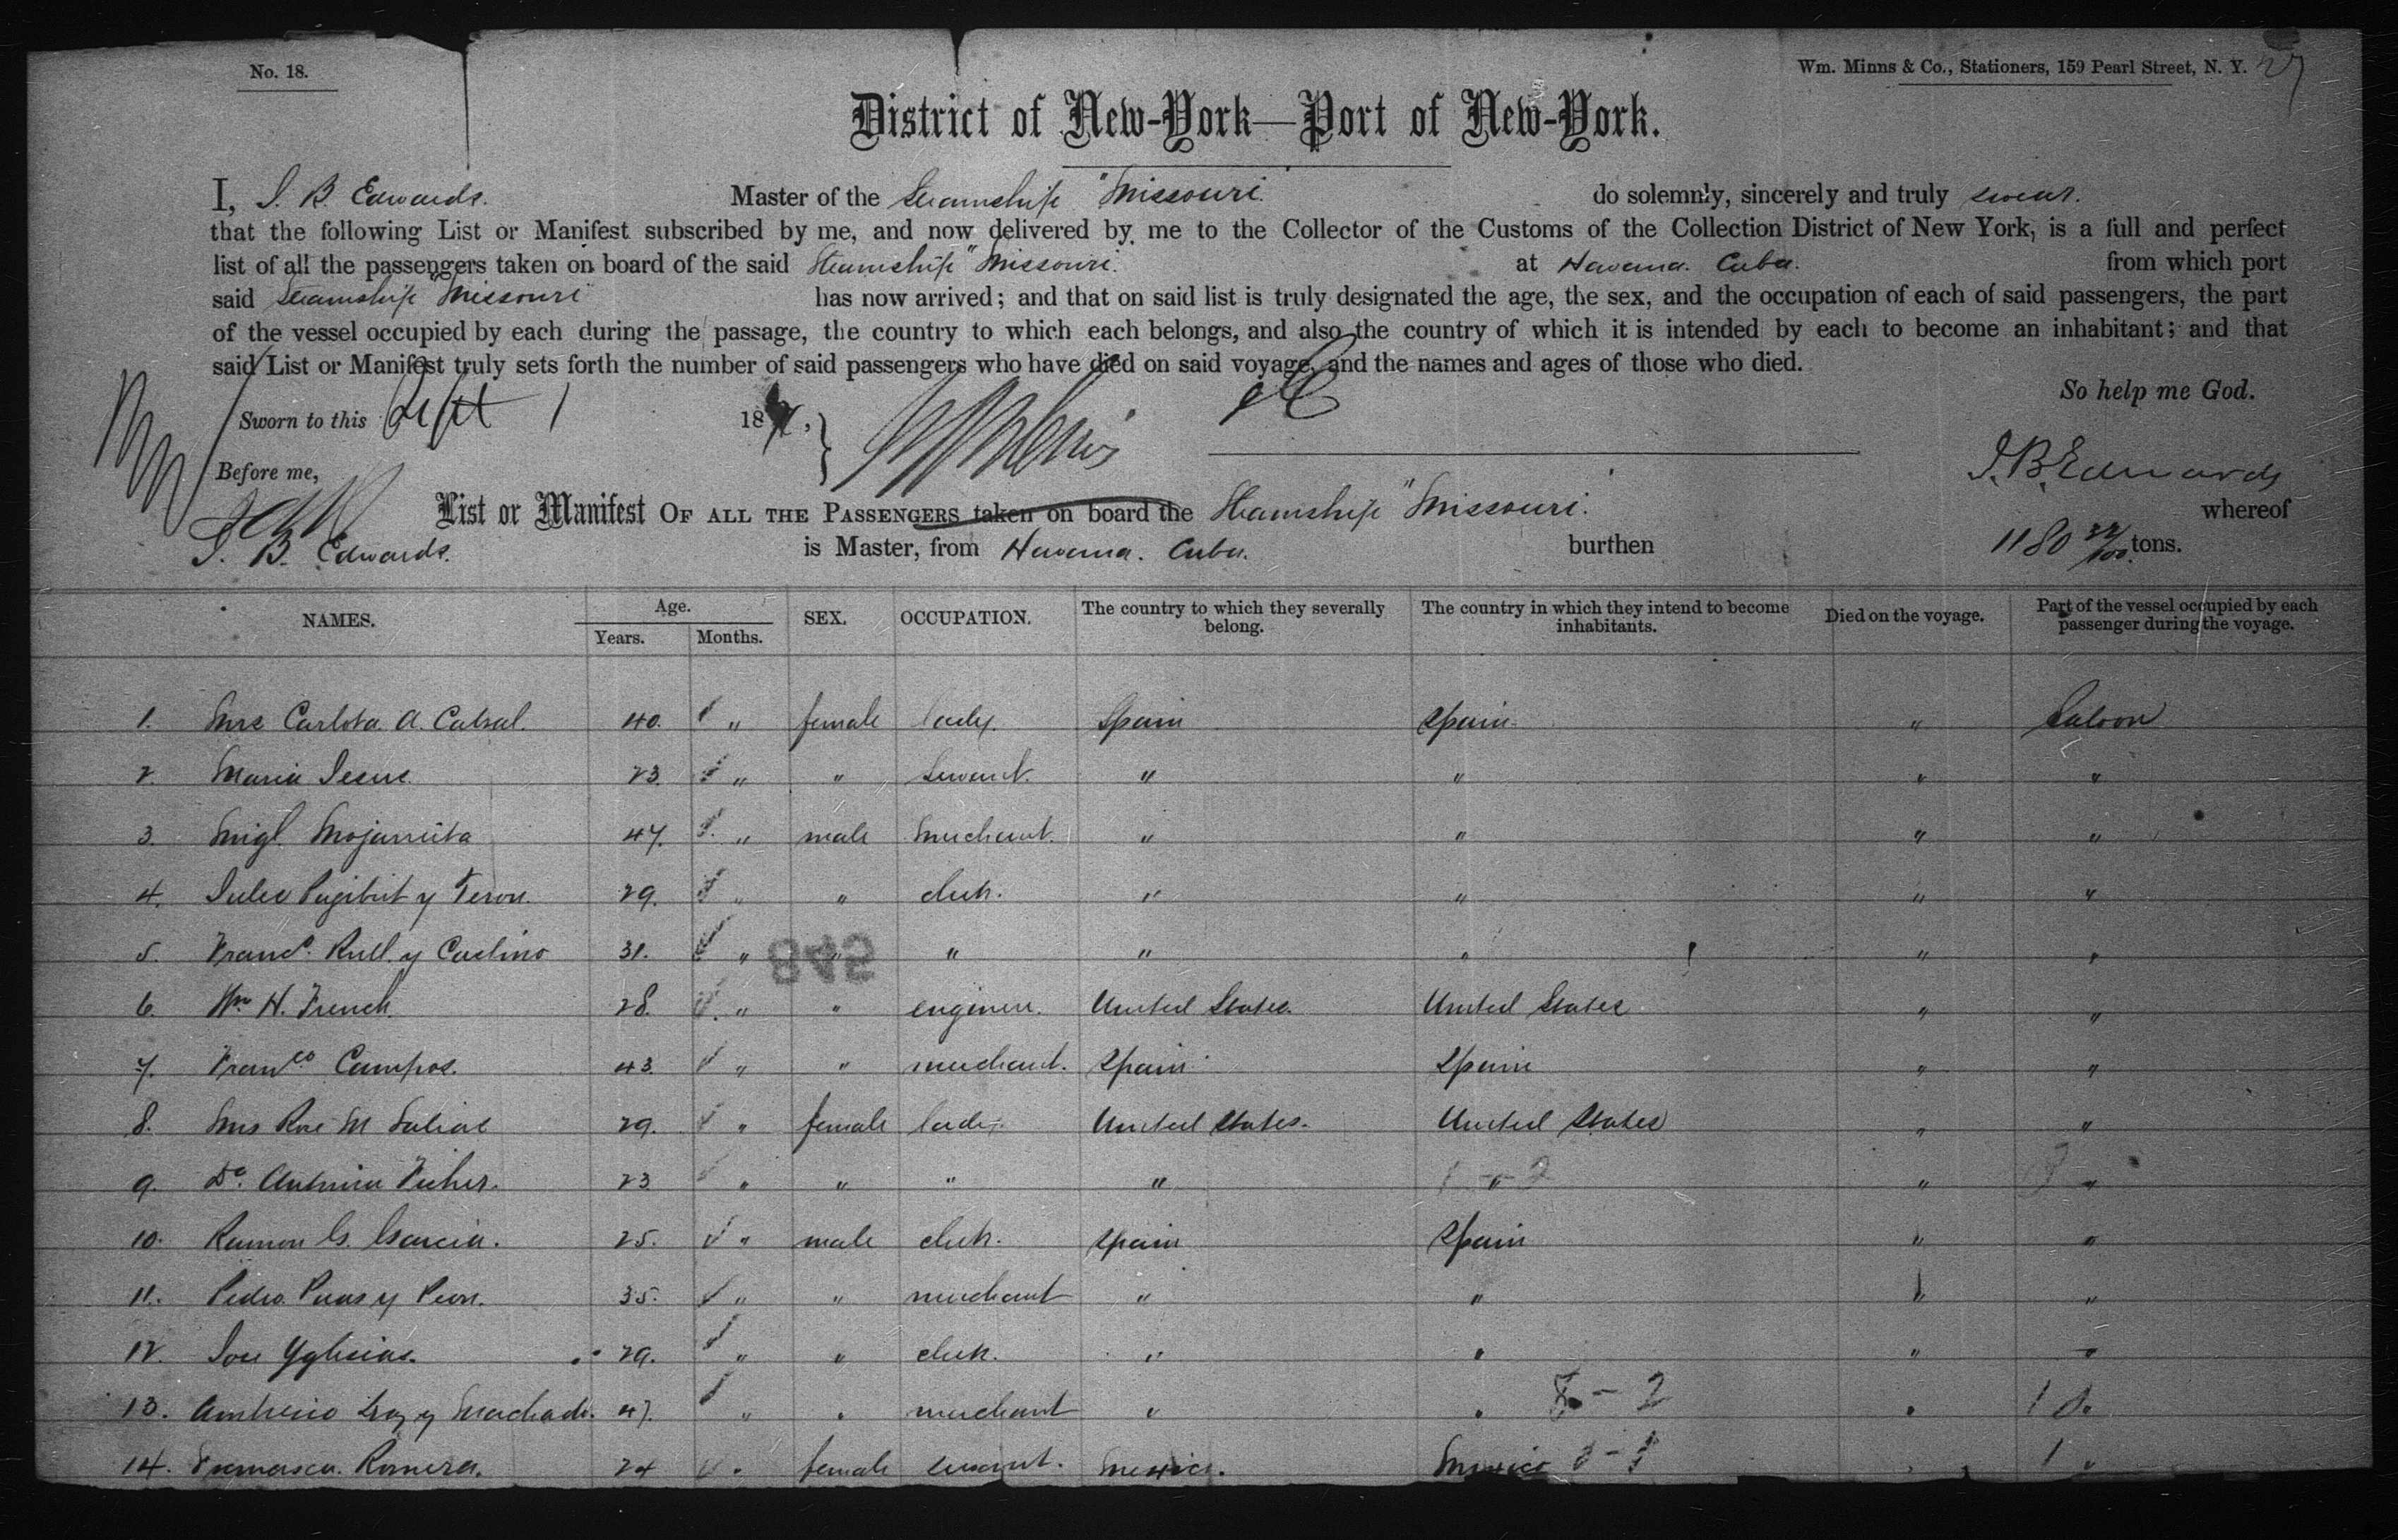 No. 18.
Wm. Minns & Co., Stationers, 159 Pearl Street, N. Y.
District of New-York—Port of New-York.
I, J. B. Edwards. Master of the Steamship "Missouri. do solemnly, sincerely and truly swear.
that the following List or Manifest subscribed by me, and now delivered by me to the Collector of the Customs of the Collection District of New York, is a full and perfect
list of all the passengers taken on board of the said Steamship "Missouri. at Havana. Cuba. from which port
said Steamship "Missouri has now arrived; and that on said list is truly designated the age, the sex, and the occupation of each of said passengers, the part
of the vessel occupied by each during the passage, the country to which each belongs, and also the country of which it is intended by each to become an inhabitant; and that
said List or Manifest truly sets forth the number of said passengers who have died on said voyage, and the names and ages of those who died.
So help me God.
Sworn to this Sept 1 18
Before me,
J. B. Edwards
List or Manifest OF ALL THE PASSENGERS taken on board the Steamship "Missouri. whereof
J. B. Edwards. is Master, from Havana. Cuba. burthen 1180 22/100 tons.
NAMES. Age. Years. Months. SEX. OCCUPATION. The country to which they severally belong. The country in which they intend to become inhabitants. Died on the voyage. Part of the vessel occupied by each passenger during the voyage.
1. Mrs Carlota A. Cabral. 40. " female lady. Spain Spain " Saloon
2. Maria Jesus. 23. " " servant. " " " "
3. Migl. 47. " male merchant. " " " "
4. Jules Pugibet y 29. " " clerk. " " " "
5. Franco. Rull y 31. " " " " " " "
845
6. Wm H. French. 28. " " engineer. United States. United States " "
7. Franco Campos. 43. " " merchant. Spain Spain " "
8. Mrs Rose M 29. " female lady. United States. United States " "
9. Da. 23 " " " " " 1 - 2 " "
10. Ramon G. Garcia. 25. " male clerk. Spain Spain " "
11. Pedro y 35. " " merchant " " " "
12. Jose Yglesias. 29. " " clerk. " " " "
13. y Machado. 47. " " merchant " " 8 - 2 " 10 "
14. Romera. 24 " female servant. Mexico. Mexico " 1 "